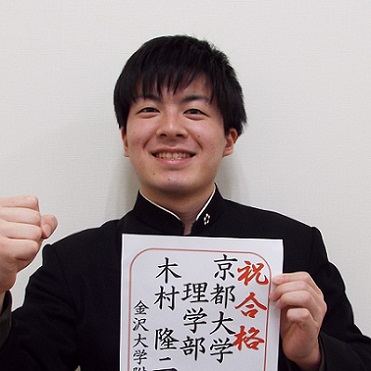 祝合格
京都大学
理学部
木村 隆二
金沢大学附